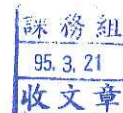 課務組
95. 3. 21
收文章